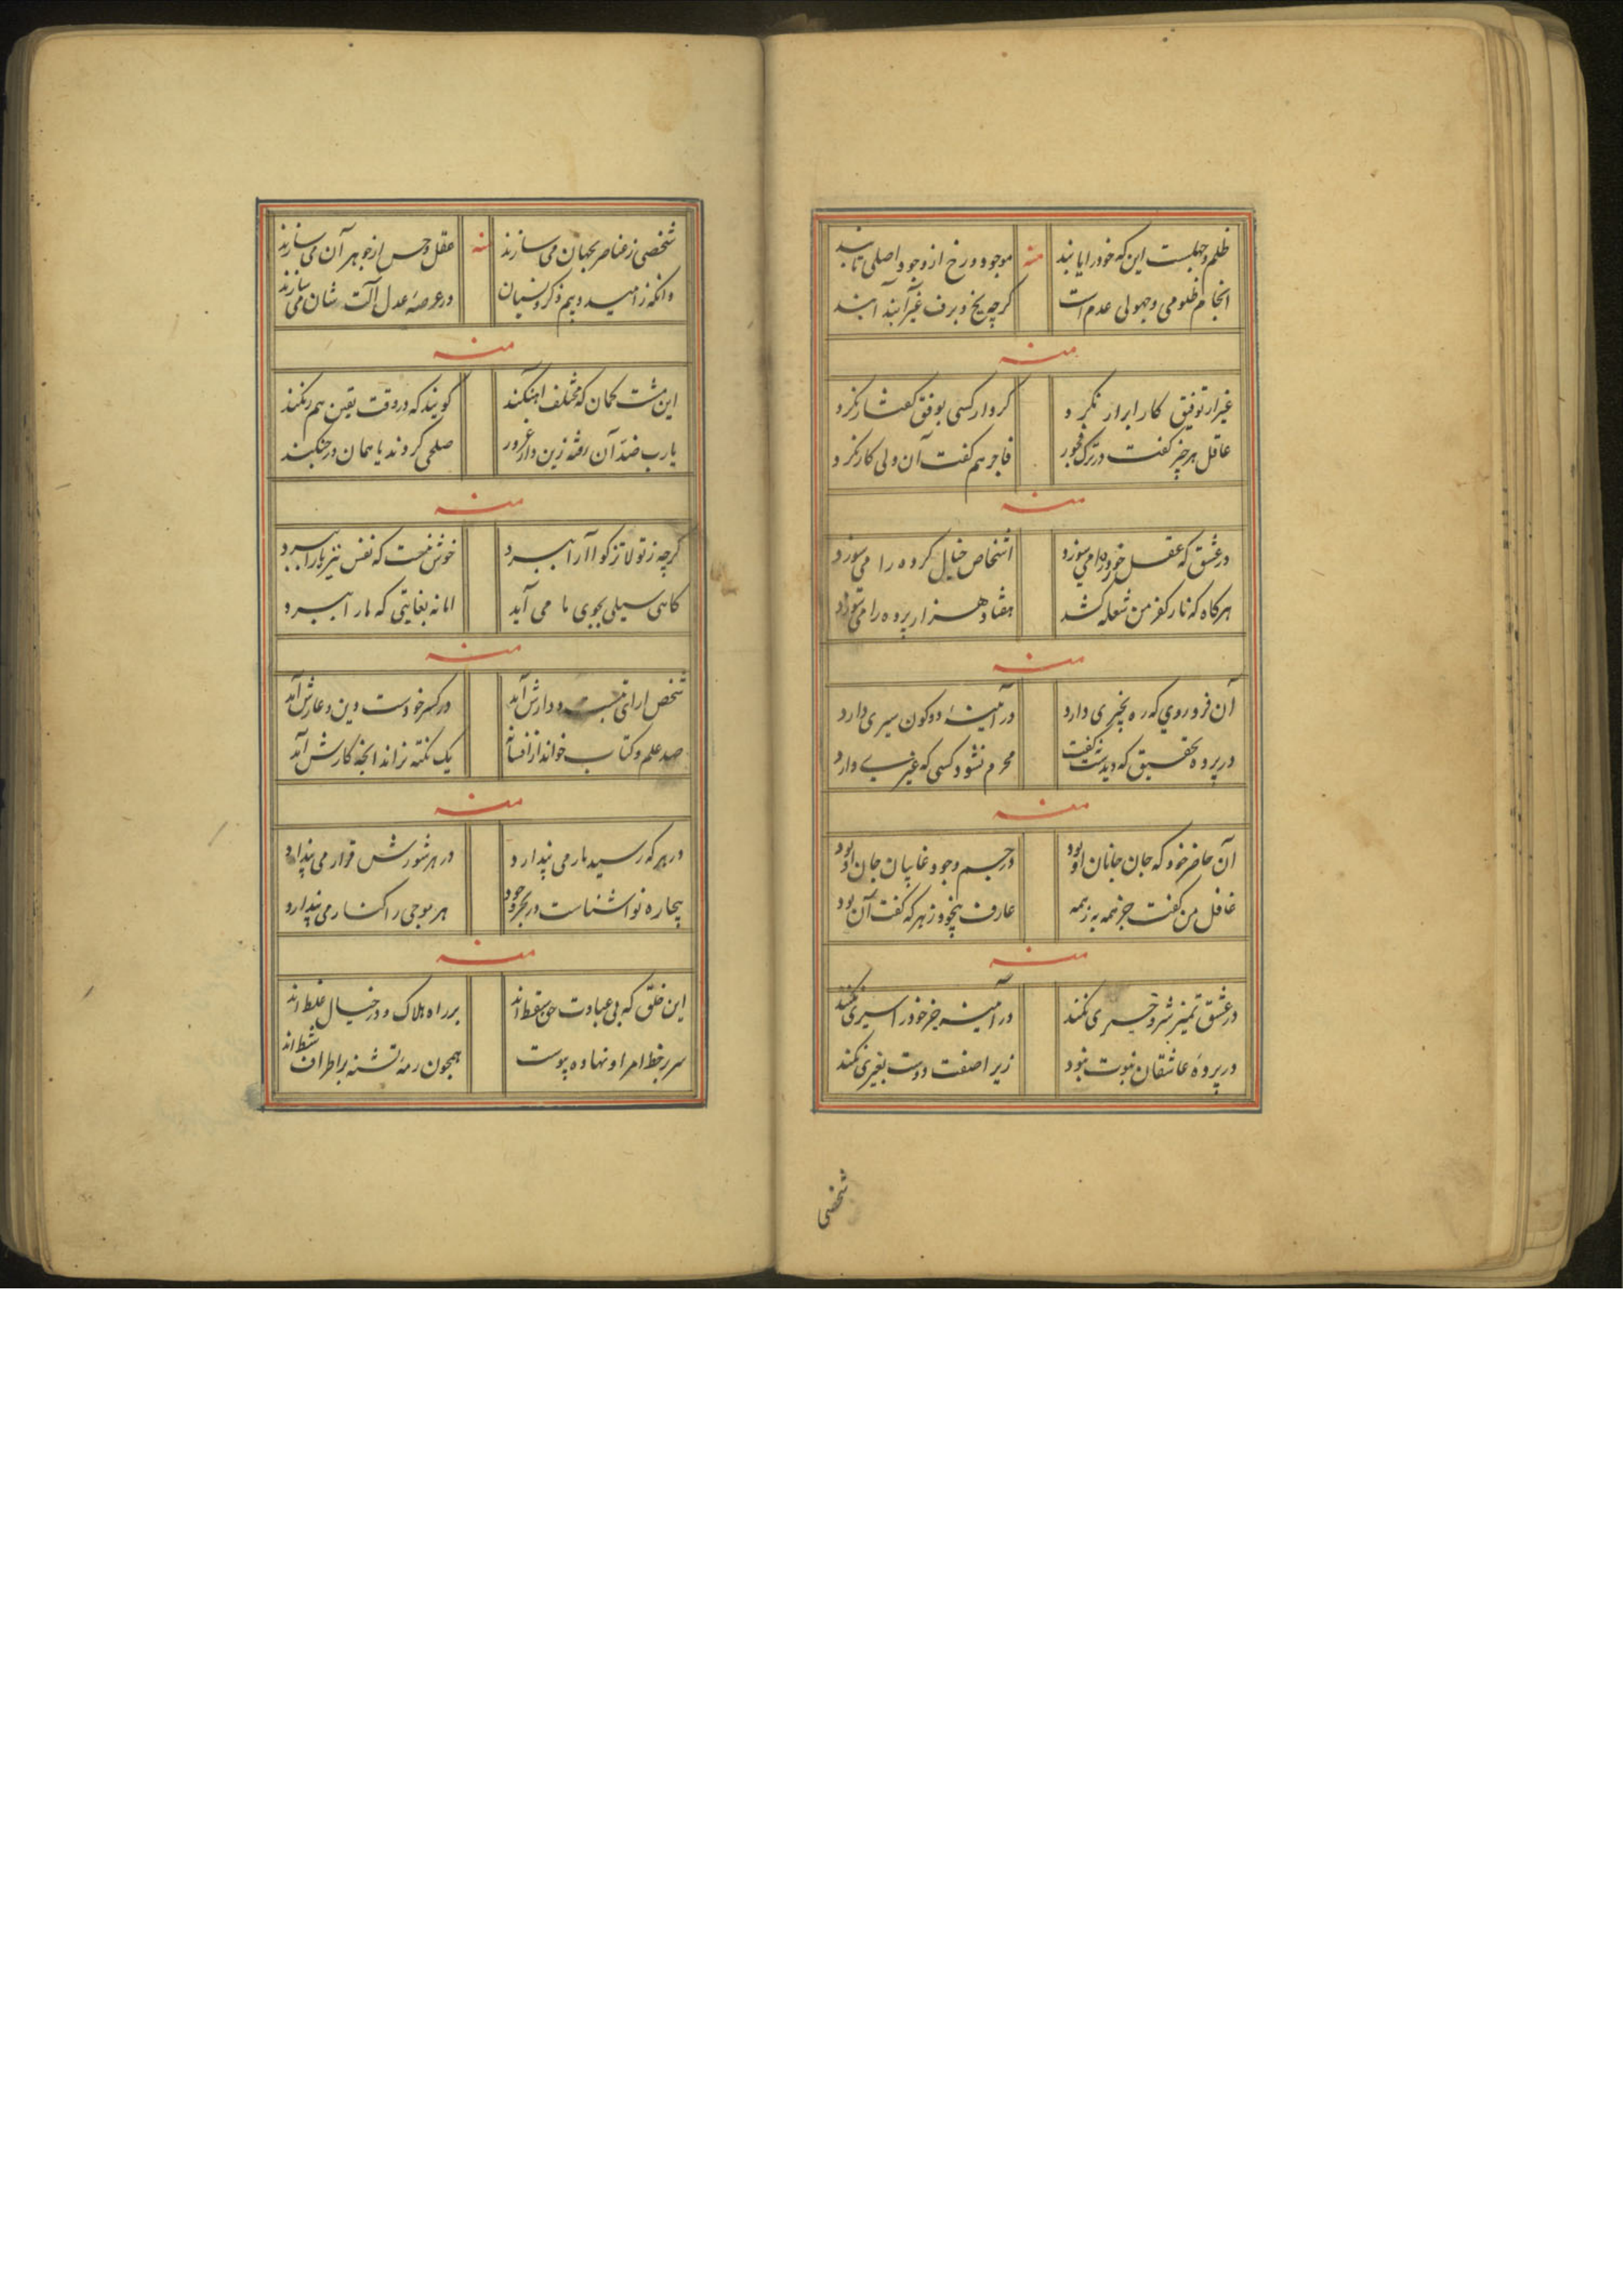 ظلم و جهلست این که خود را یابند
منه
موجود ورخ از وجود اصلی تابند
انجام ظلومی و جهولی عدم است
گرچه یخ و برف غیر آبند آبند
منه
غیر از توفیق کار ابرار نکرد
کردار کسی بوفق گفتار نکرد
عاقل هر چیز گفت در ترک فجور
فاجر هم گفت آن ولی کار نکرد
منه
در عشق که عقل خرده را می سوزد
اشخاص خیال کرده را می سوزد
هرگاه که نار کفر من شعله کشد
هفتاد هزار پرده را می سوزد
منه
آن فرد روی که ره بخیری دارد
در آینهٔ دو کون سیری دارد
در پرده تحقیق که دیدست نگفت
محرم نشود کسی که غیری دارد
منه
آن حاضر خود که جان جانان او بود
در جسم وجود غایبان جان او بود
غافل من گفت جز همه به ز همه
عارف بیخود ز هر که گفت آن بود
منه
در عشق تمیز شر و خیری نکند
در آینه جز خود را سیری نکند
در پردهٔ عاشقان نبوت نبود
زیرا صفت دوست بغیری نکند
شخصی
شخصی ز عناصر بجهان می سازند
منه
عقل و حس از جوهر آن می سازند
وانگه ز امید و بیم و ذکر و نسیان
در عرصهٔ عدل آلت شان می سازند
منه
این مشت کجان که مختلف آهنگند
گویند که در وقت یقین هم رنگند
یارب ضد آن رفته زین دار غرور
صلحی کردند یا همان در جنگند
منه
گرچه ز تو لاتزکوا آرا ببرد
خوش نیست که نفس نیز ما را ببرد
گاهی سیلی بجوی ما می آید
اما نه بغایتی که ما را ببرد
منه
شخص ار انی دارش آید
در کسر خودست دین و عارش آید
صد علم و کتاب خواند از افسانه
یک نکته نراند آنچه کارش آید
منه
در هر که رسید یار می پندارد
در هر شورش قرار می پندارد
بیچاره نو آشناست در بحر وجود
هر موجی را کنار می پندارد
منه
این خلق که بی عبادت حق سقط اند
بر راه هلاک و در خیال غلط اند
سر بر خط امر او نهاده پیوست
همچون رمهٔ تشنه بر اطراف شط اند